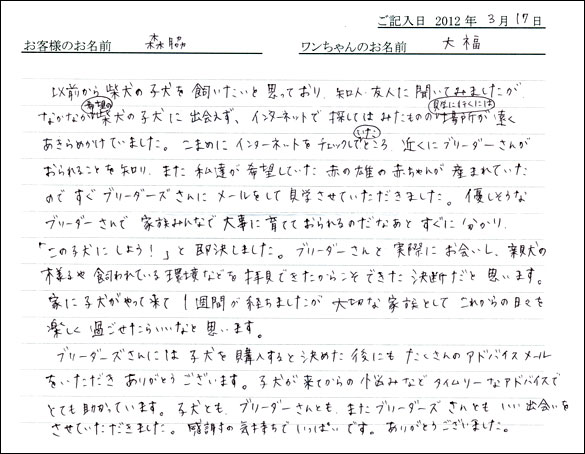 ご記入日 2012年 3月 17日
お客様のお名前 森脇 ワンちゃんのお名前 大福
以前から柴犬の子犬を飼いたいと思っており、知人・友人に聞いてみましたが、
なかなか希望の柴犬の子犬に出会えず、インターネットで探してはみたものの見学に行くには場所が遠く
あきらめかけていました。こまめにインターネットをチェックしていたところ、近くにブリーダーさんが
おられることを知り、また私達が希望していた赤の雄の赤ちゃんが産まれていた
のですぐブリーダーズさんにメールをして見学させていただきました。優しそうな
ブリーダーさんで家族みんなで大事に育てておられるのだなあとすぐに分かり、
「この子犬にしよう！」と即決しました。ブリーダーさんと実際にお会いし、親犬の
様子や飼われている環境などを拝見できたからこそできた決断だと思います。
家に子犬がやって来て1週間が経ちましたが大切な家族としてこれからの日々を
楽しく過ごせたらいいなと思います。
ブリーダーズさんには子犬を購入すると決めた後にもたくさんのアドバイスメール
をいただきありがとうございます。子犬が来てからの悩みなどタイムリーなアドバイスで
とても助かっています。子犬とも、ブリーダーさんとも、またブリーダーズさんともいい出会いを
させていただきました。感謝の気持ちでいっぱいです。ありがとうございました。